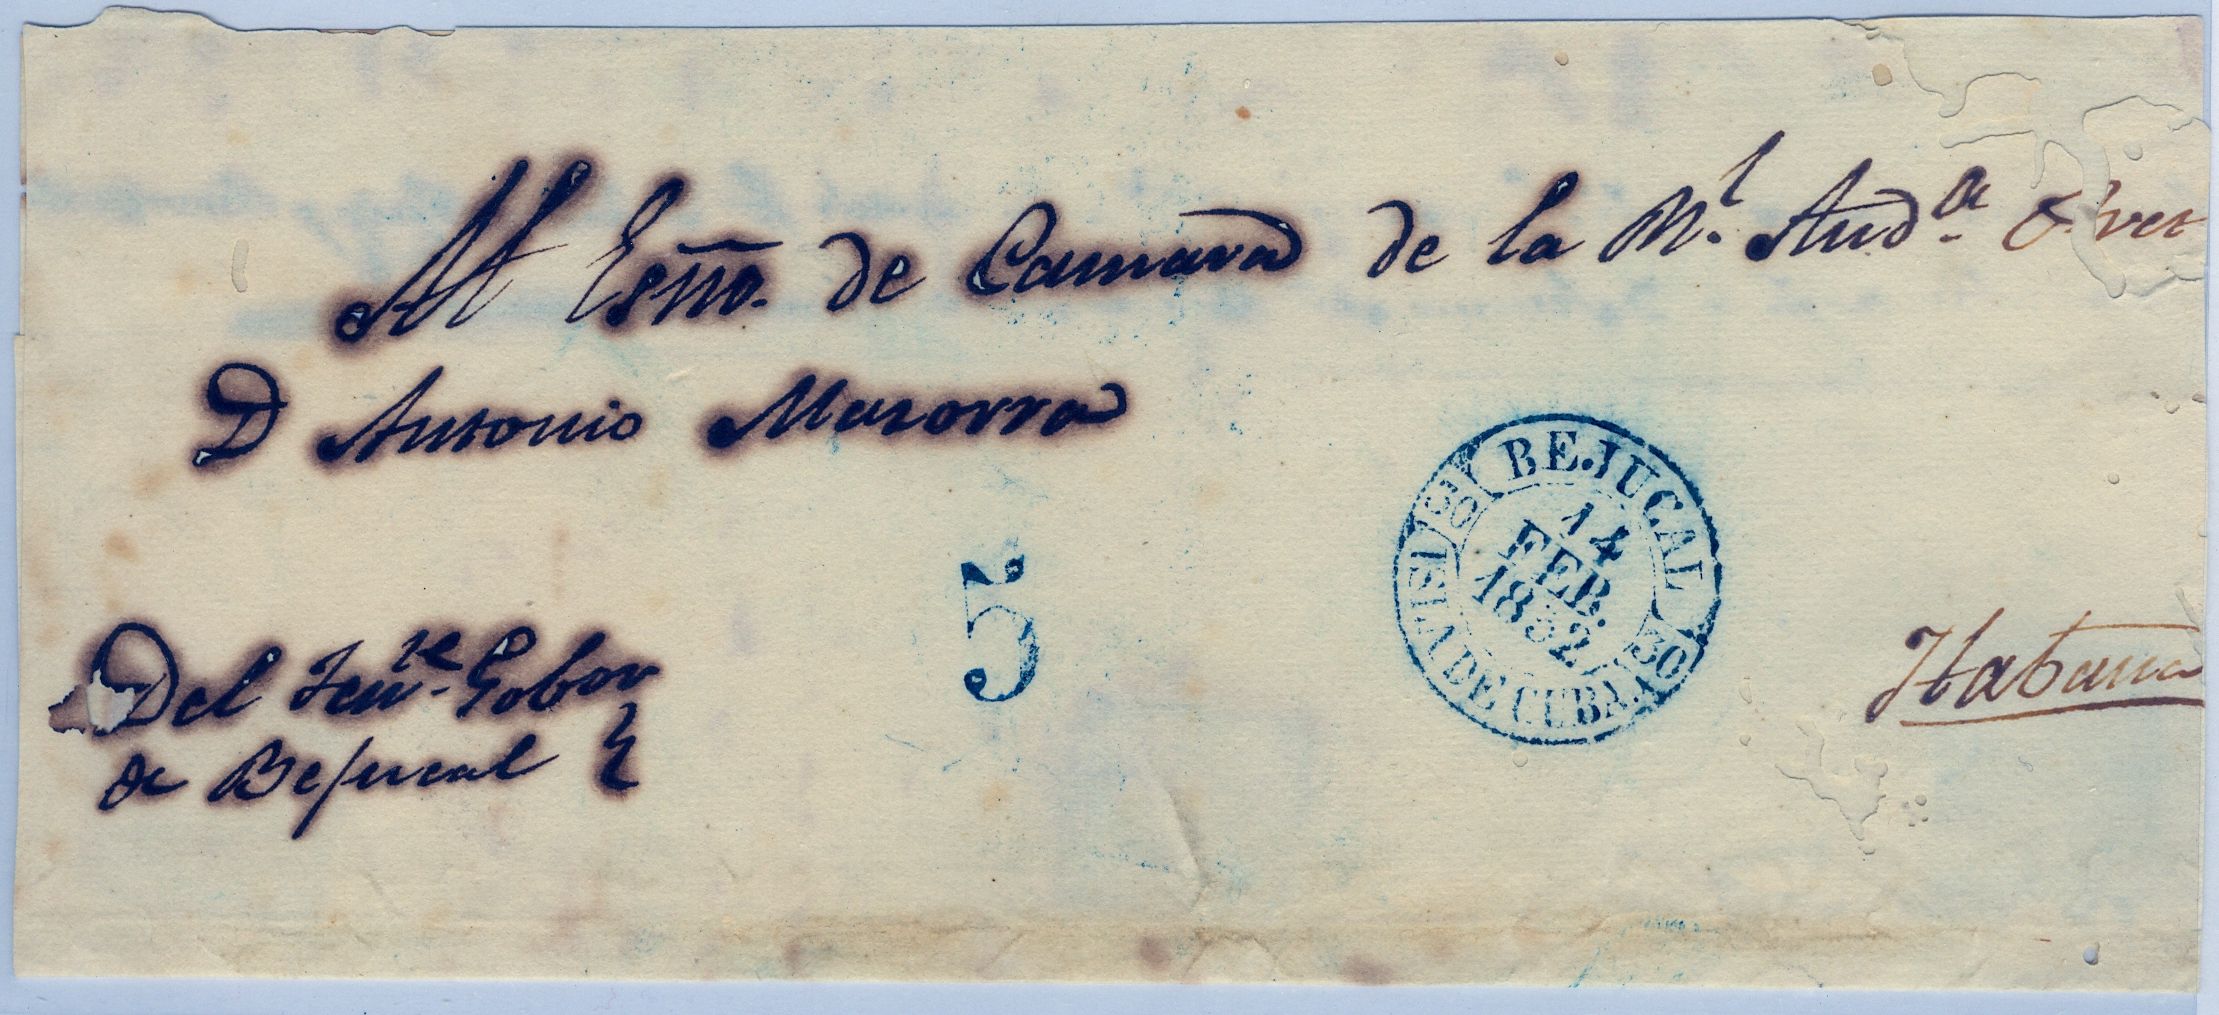 Al Esño. de Camara de la Rl. Audª.
D Antonio Mazorra
5
BEJUCAL
30
14
FEB.
1852
30
ISLA DE CUBA.
Habana
Del Tente. Gobor
de Bejucal